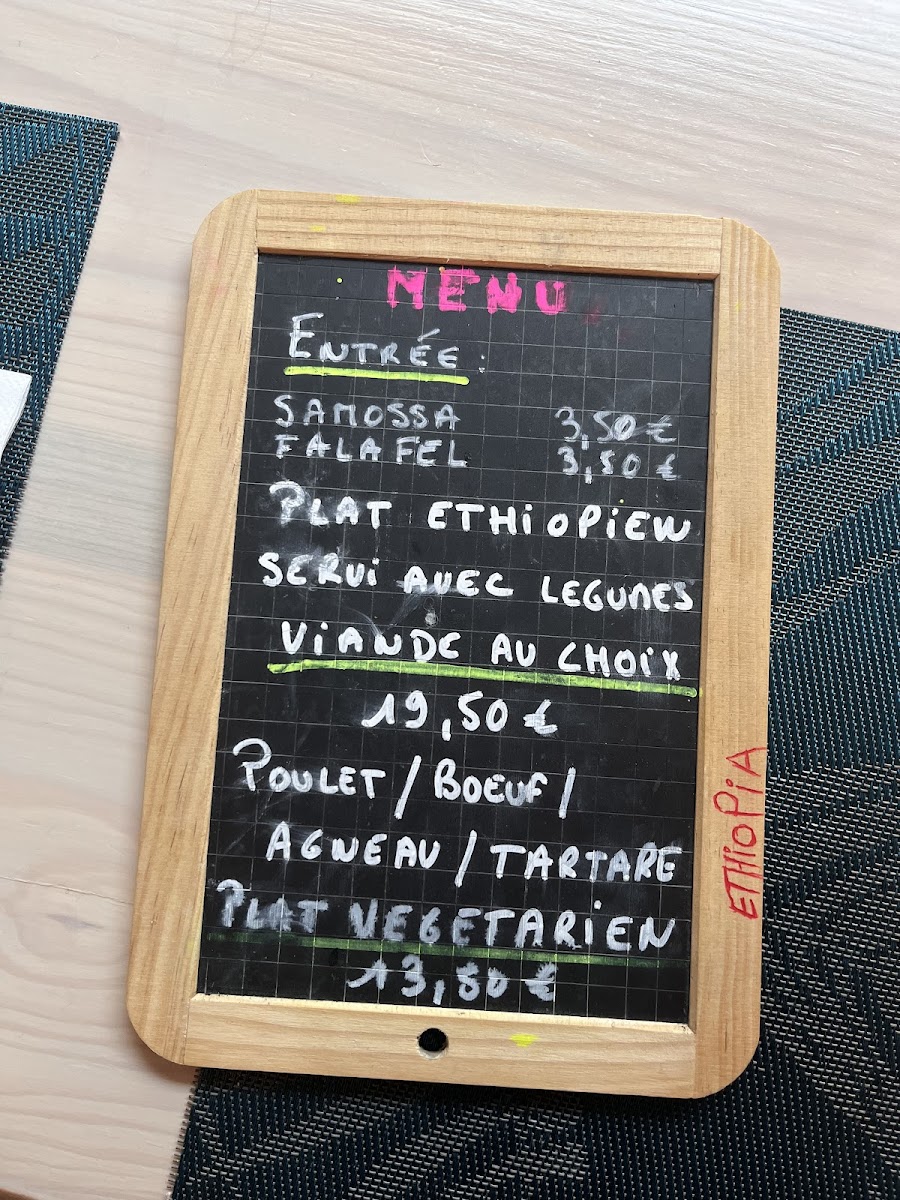 MENU
ENTRÉE :
SAMOSSA 3,50 €
FALAFEL 3,50 €
PLAT ETHIOPIEN
SERVI AVEC LEGUMES
VIANDE AU CHOIX
19,50 €
POULET / BOEUF /
AGNEAU / TARTARE
PLAT VEGETARIEN
13,80 €
ETHIOPIA